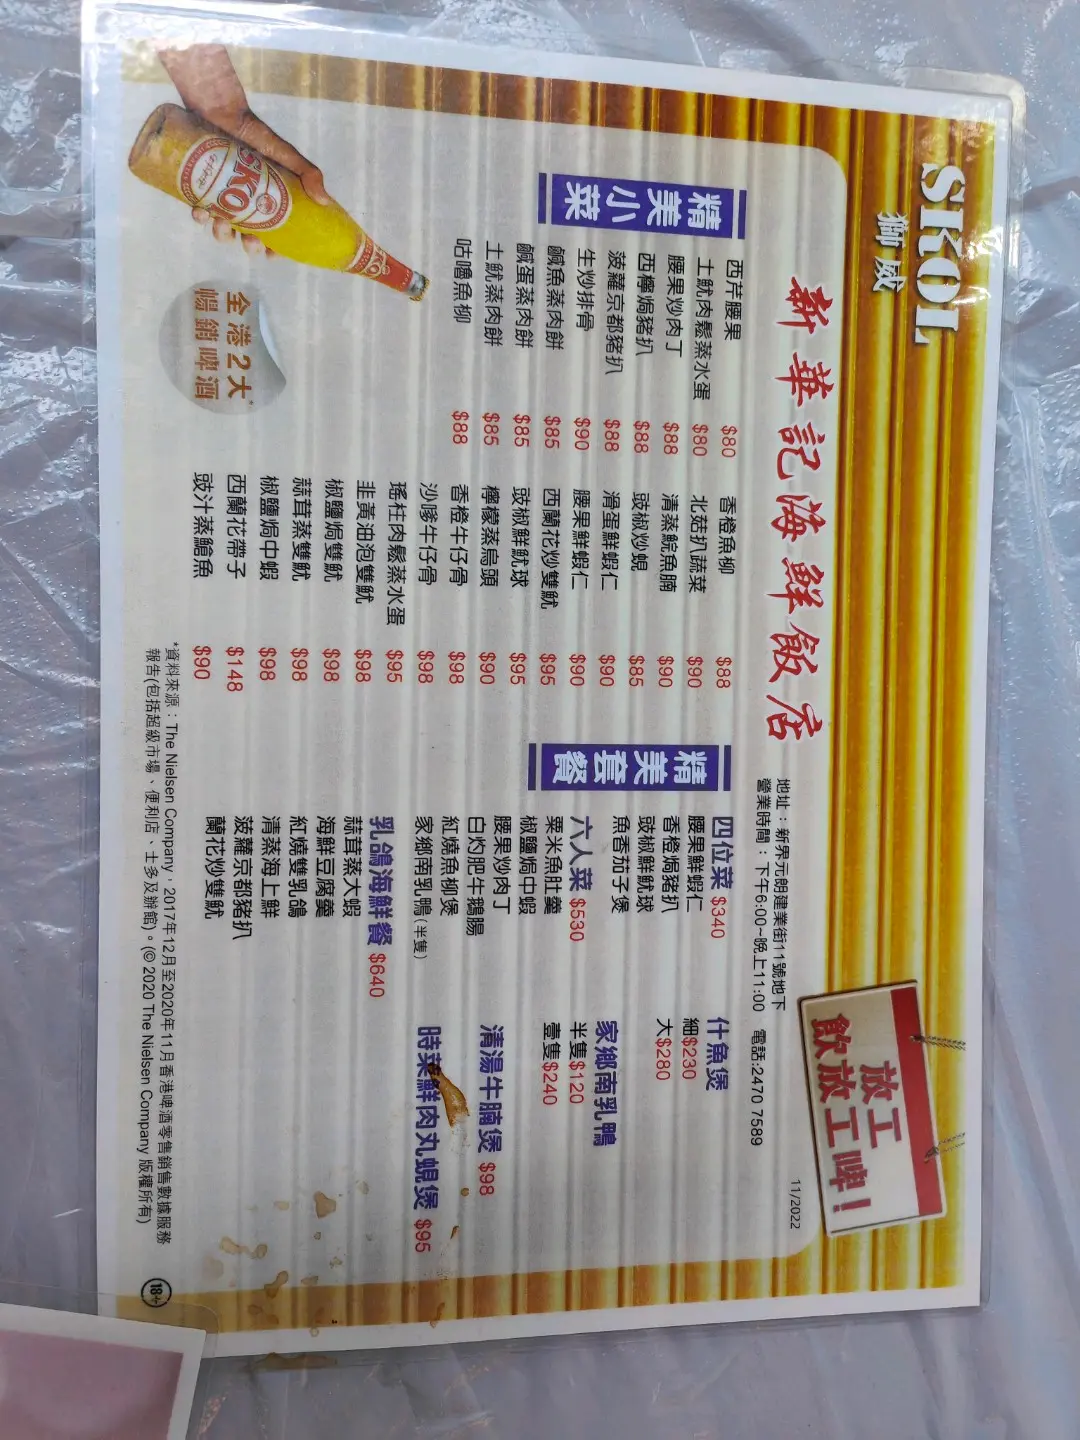 SKOL
獅威
新華記海鮮飯店
地址：新界元朗建業街11號地下 電話:2470 7589
營業時間：下午6:00~晚上11:00
11/2022
放工
飲放工啤!
精美小菜
西芹腰果 $80
土魷肉鬆蒸水蛋 $80
腰果炒肉丁 $88
西檸焗豬扒 $88
菠蘿京都豬扒 $88
生炒排骨 $90
鹹魚蒸肉餅 $85
鹹蛋蒸肉餅 $85
土魷蒸肉餅 $85
咕嚕魚柳 $88
香橙魚柳 $88
北菇扒蔬菜 $90
清蒸鯇魚腩 $90
豉椒炒蜆 $85
滑蛋鮮蝦仁 $90
腰果鮮蝦仁 $90
西蘭花炒雙魷 $95
豉椒鮮魷球 $95
檸檬蒸烏頭 $90
香橙牛仔骨 $98
沙嗲牛仔骨 $98
瑤柱肉鬆蒸水蛋 $95
韭黃油泡雙魷 $98
椒鹽焗雙魷 $98
蒜茸蒸雙魷 $98
椒鹽焗中蝦 $98
西蘭花帶子 $148
豉汁蒸鯧魚 $90
精美套餐
四位菜 $340
腰果鮮蝦仁
香橙焗豬扒
豉椒鮮魷球
魚香茄子煲
六人菜 $530
粟米魚肚羹
椒鹽焗中蝦
腰果炒肉丁
白灼肥牛鵝腸
紅燒魚柳煲
家鄉南乳鴨(半隻)
乳鴿海鮮餐 $640
蒜茸蒸大蝦
海鮮豆腐羹
紅燒雙乳鴿
清蒸海上鮮
菠蘿京都豬扒
蘭花炒雙魷
什魚煲
細$230
大$280
家鄉南乳鴨
半隻$120
壹隻$240
清湯牛腩煲 $98
時菜鮮肉丸蜆煲 $95
SKOL
全港2大*
暢銷啤酒
*資料來源：The Nielsen Company，2017年12月至2020年11月香港啤酒零售銷售數據服務
報告(包括超級市場、便利店、士多及辦館)。(© 2020 The Nielsen Company 版權所有)
18+